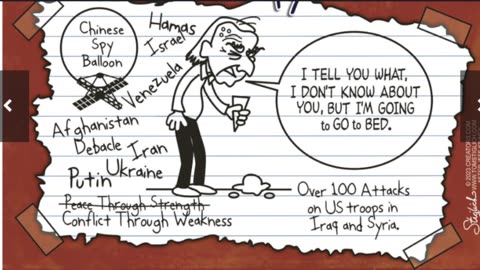 Chinese
Spy
Balloon
Hamas
Israel
Venezuela
I TELL YOU WHAT,
I DON'T KNOW ABOUT
YOU, BUT I'M GOING
to GO to BED.
Afghanistan
Debacle
Iran
Ukraine
Putin
Peace Through Strength
Conflict Through Weakness
Over 100 Attacks
on US troops in
Iraq and Syria.
© 2023 CREATORS.COM
Stiglich